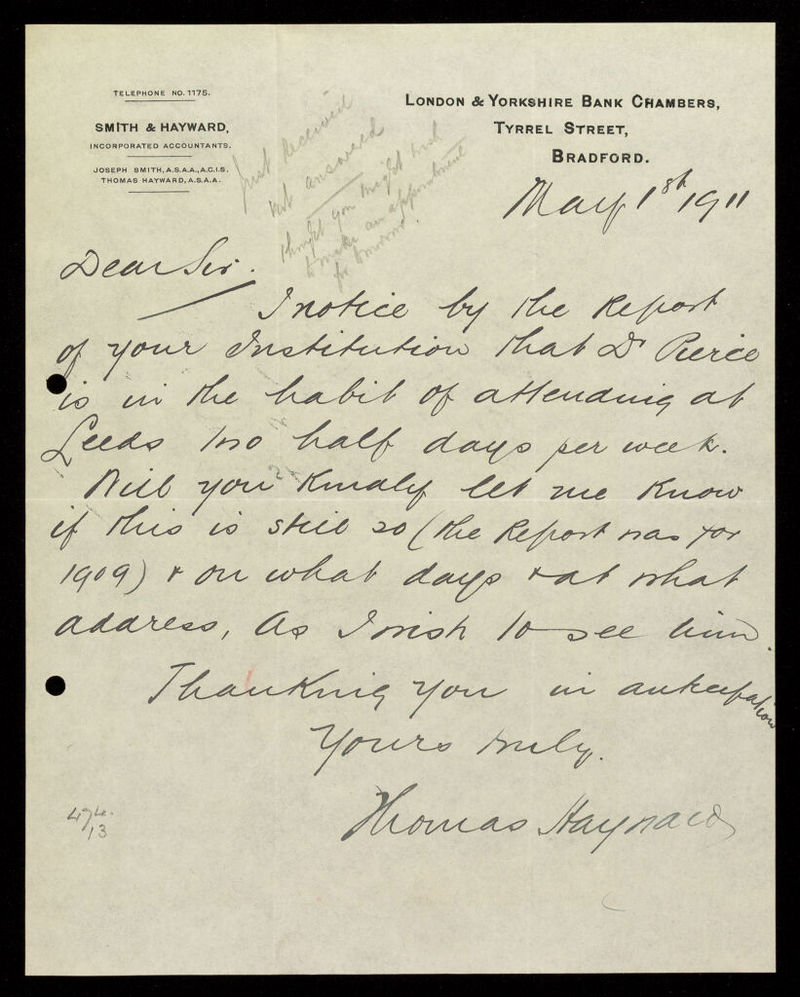 TELEPHONE NO. 1175.
SMITH & HAYWARD,
INCORPORATED ACCOUNTANTS.
JOSEPH SMITH, A.S.A.A., A.C.I.S.
THOMAS HAYWARD, A.S.A.A.
LONDON & YORKSHIRE BANK CHAMBERS,
TYRREL STREET,
BRADFORD.
Just received
not answered
thought you might wish
to make an appointment
for tomorrow.
May 1st 1911
Dear Sir.
I notice by the Report
of your Institution that Dr Pierce
is in the habit of attending at
Leeds two half days per week.
Will you kindly let me know
if this is still so (the Report was for
1909) & on what days & at what
address, as I wish to see him.
Thanking you in anticipation
Yours truly.
Thomas Hayward
474.
13